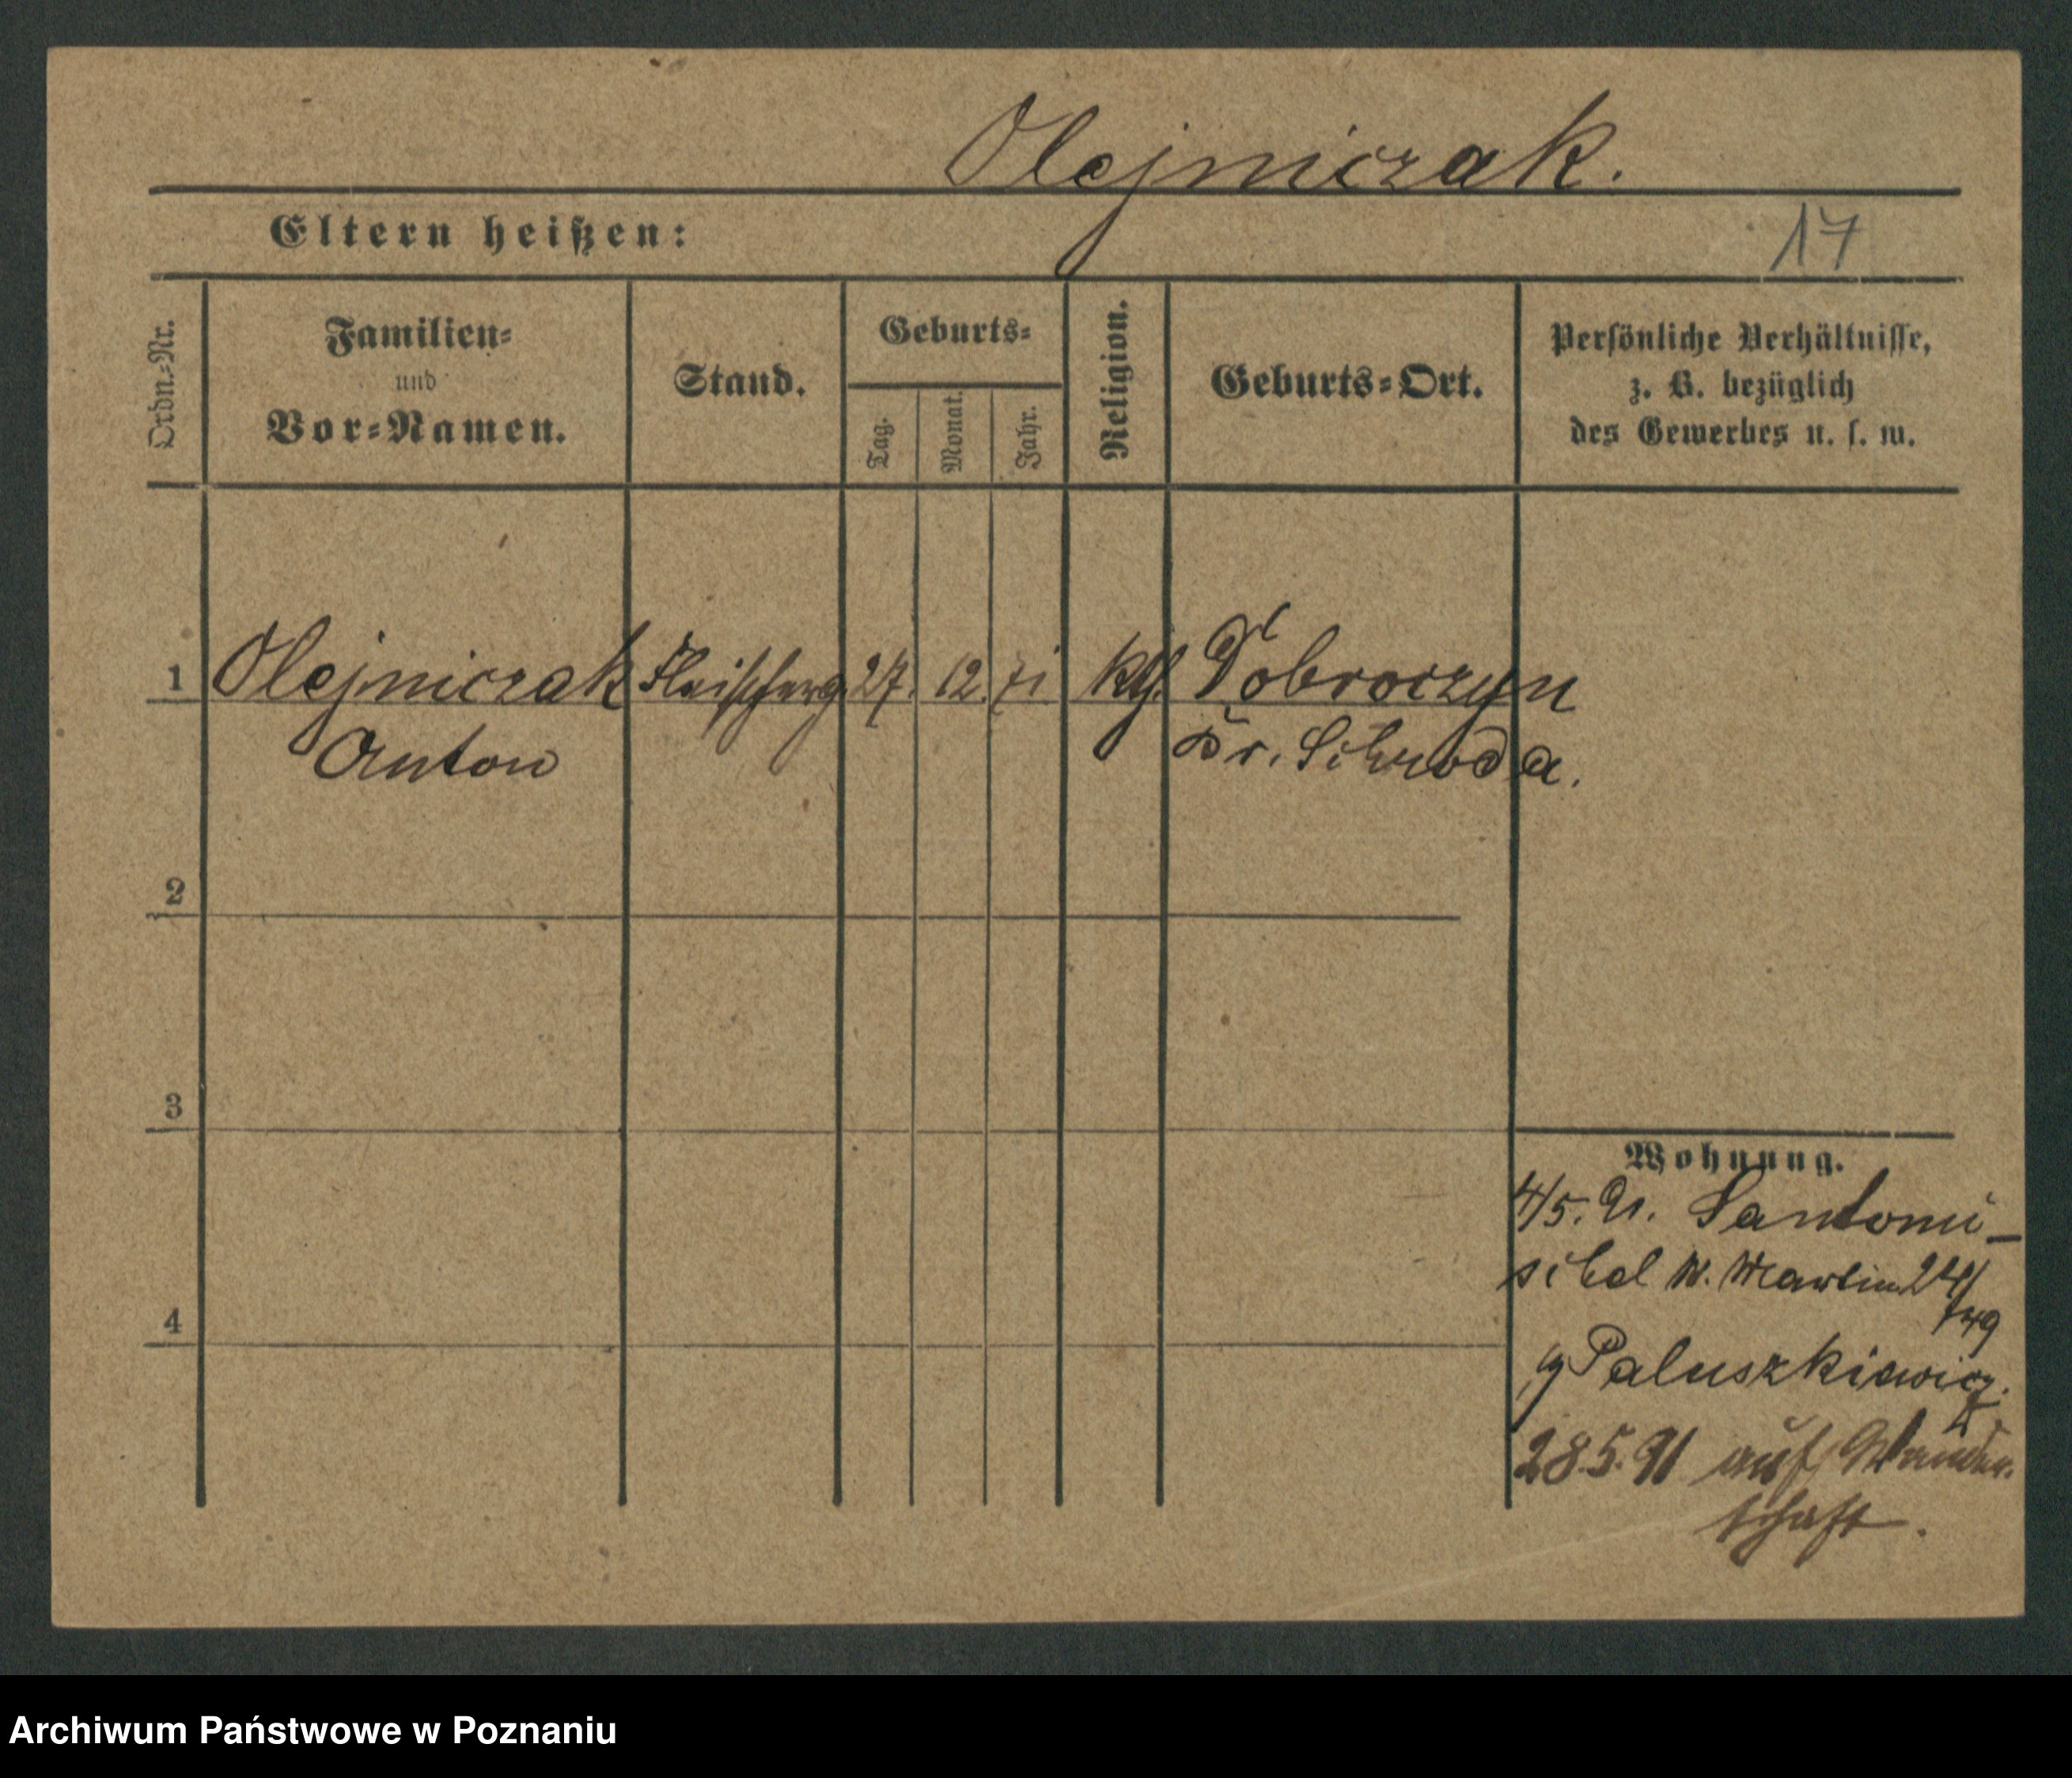 Olejniczak.
Eltern heißen:
17
Ordn.-Nr.
Familien-
und
Vor-Namen.
Stand.
Geburts-
Tag.
Monat.
Jahr.
Religion.
Geburts-Ort.
Persönliche Verhältnisse,
z. B. bezüglich
des Gewerbes u. s. w.
1 Olejniczak Fleischerg 27. 12. 71 kth. Dobroczyn
Anton Kr. Schroda.
2
3
4
Wohnung.
4/5. 91. Santomi-
schel n. Martin 24/
49
Paluszkiewicz.
28.5.91 auf Wander-
schaft.
Archiwum Państwowe w Poznaniu